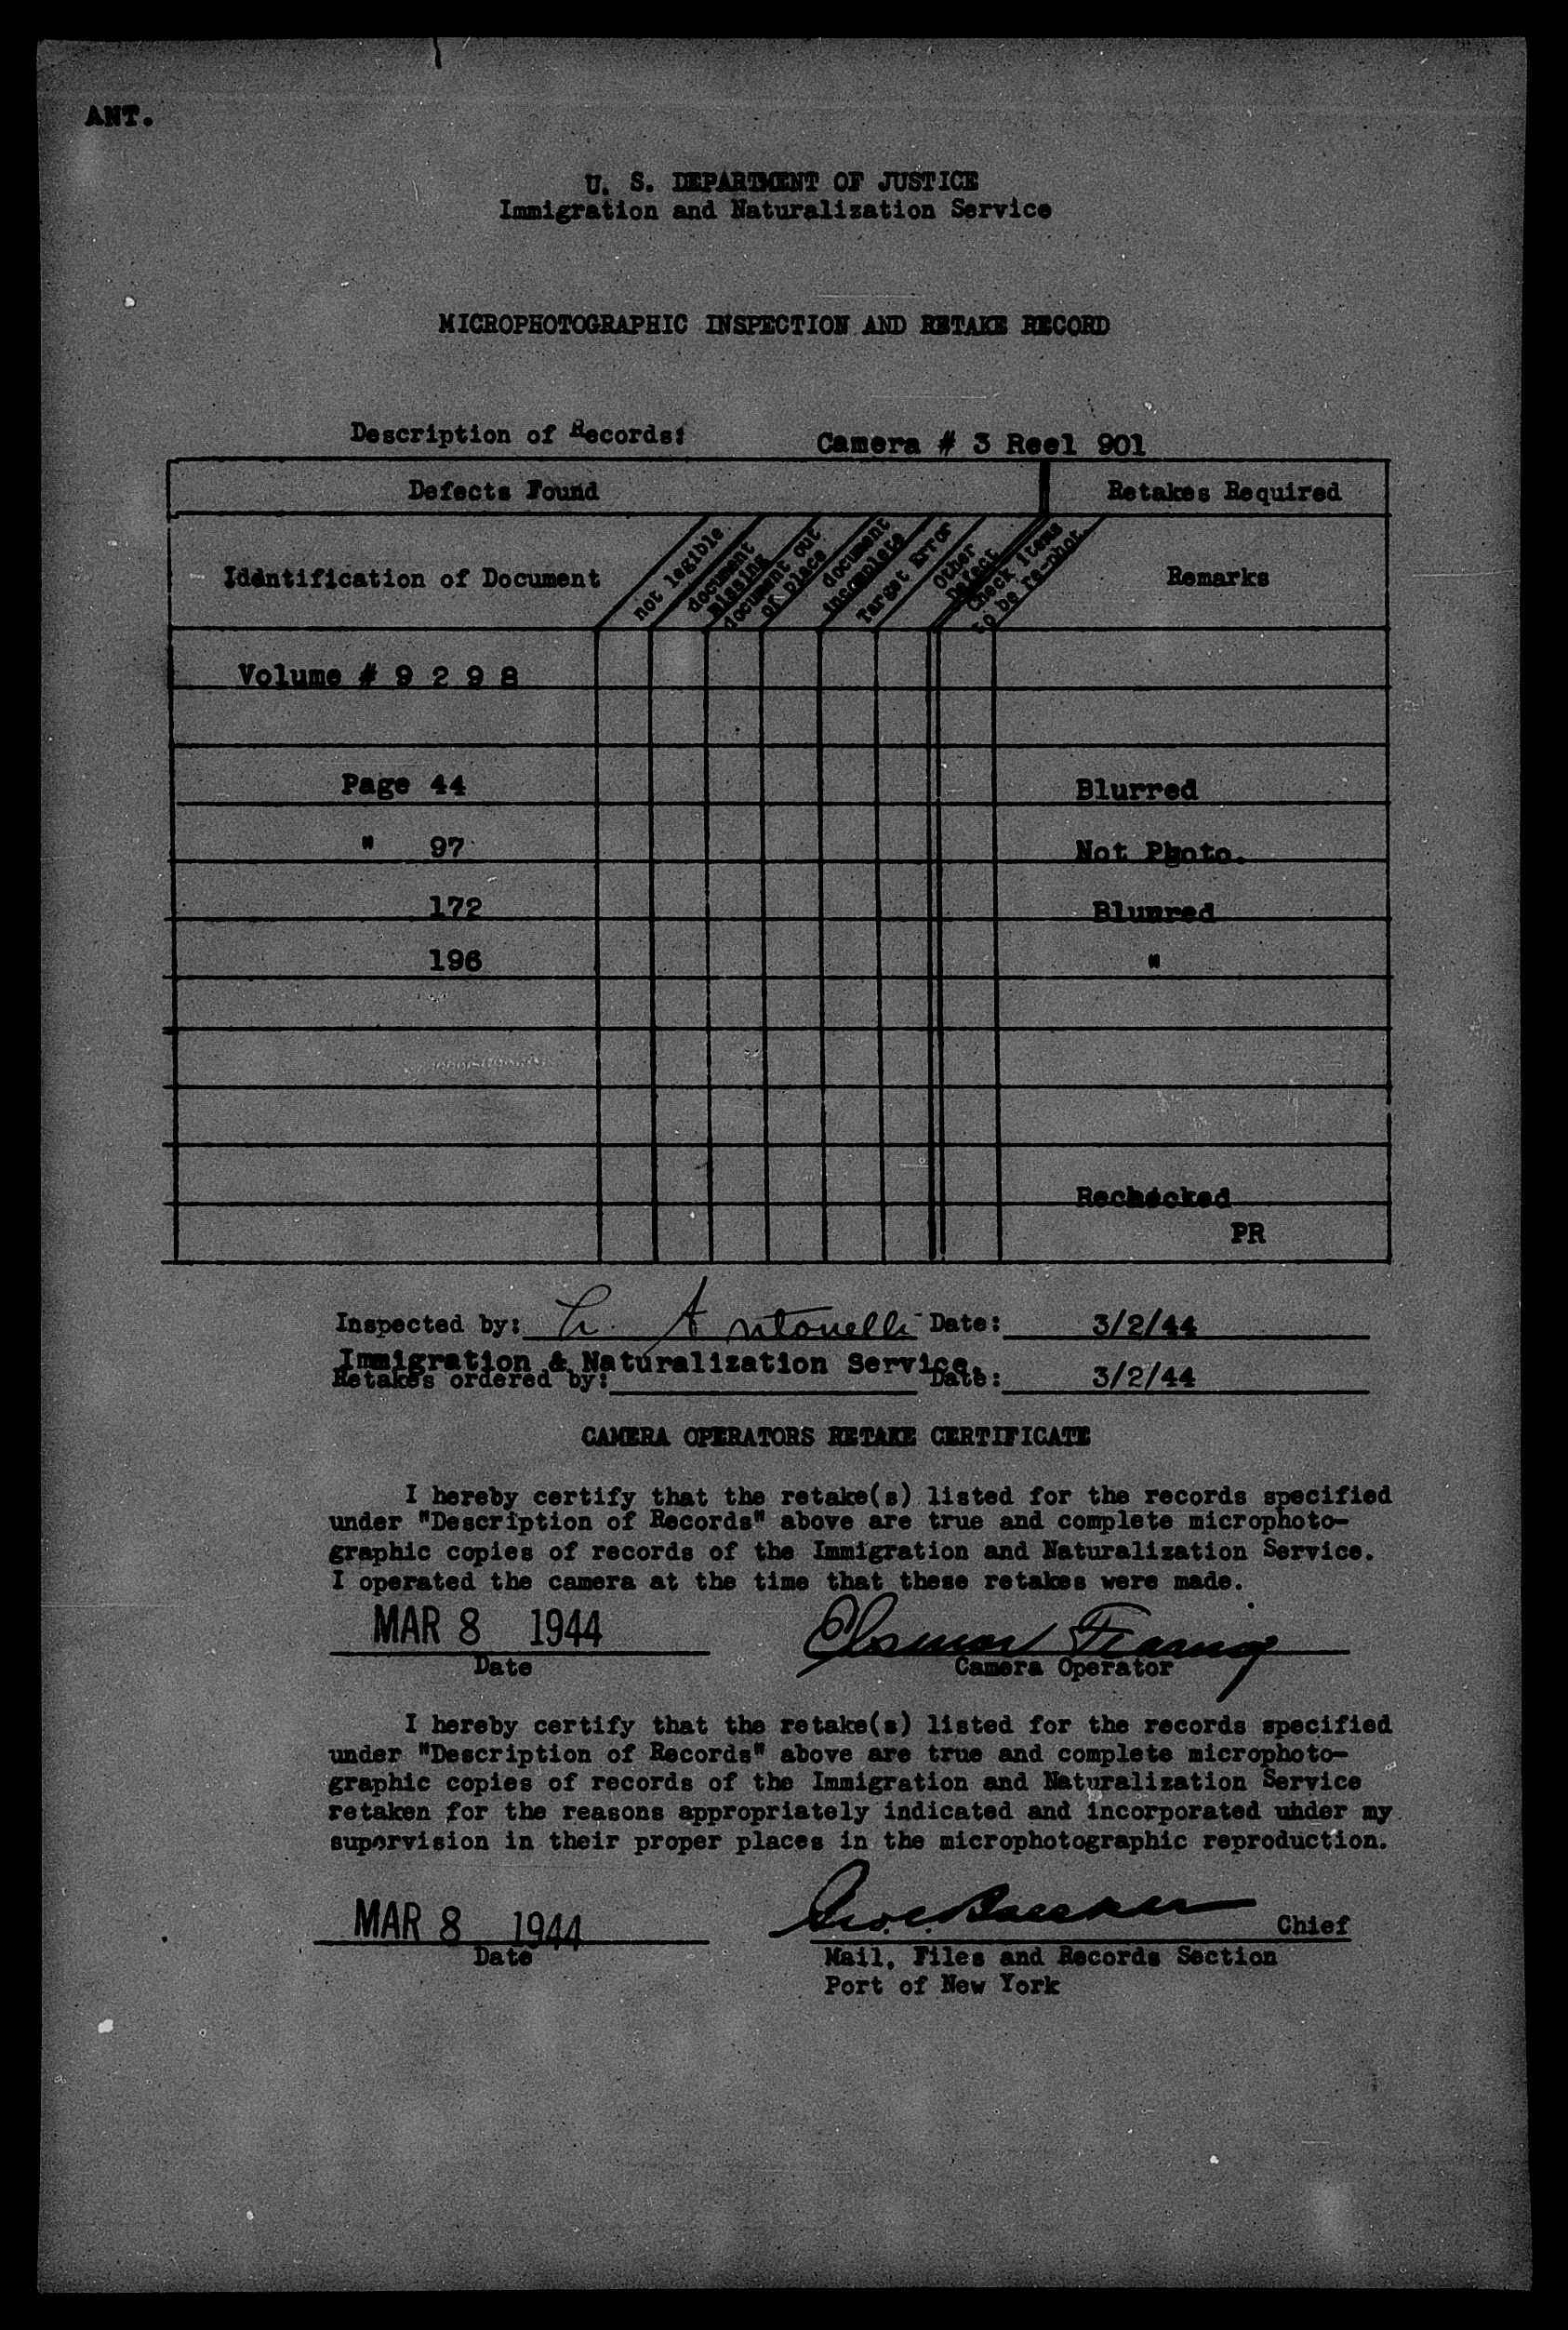 ANT.
U. S. DEPARTMENT OF JUSTICE
Immigration and Naturalization Service
MICROPHOTOGRAPHIC INSPECTION AND RETAKE RECORD
Description of Records: Camera # 3 Reel 901
Defects Found Retakes Required
Identification of Document
not legible
document missing
document out of place
document incomplete
Target Error
Other Defect
Check items to be re-phot.
Remarks
Volume # 9 2 9 8
Page 44 Blurred
" 97 Not Photo.
172 Blurred
196 "
Rechecked
PR
Inspected by: Antonelli Date: 3/2/44
Immigration & Naturalization Service.
Retakes ordered by: Date: 3/2/44
CAMERA OPERATORS RETAKE CERTIFICATE
I hereby certify that the retake(s) listed for the records specified
under "Description of Records" above are true and complete microphoto-
graphic copies of records of the Immigration and Naturalization Service.
I operated the camera at the time that these retakes were made.
MAR 8 1944
Date Camera Operator
I hereby certify that the retake(s) listed for the records specified
under "Description of Records" above are true and complete microphoto-
graphic copies of records of the Immigration and Naturalization Service
retaken for the reasons appropriately indicated and incorporated uhder my
supervision in their proper places in the microphotographic reproduction.
MAR 8 1944 Chief
Date Mail, Files and Records Section
Port of New York